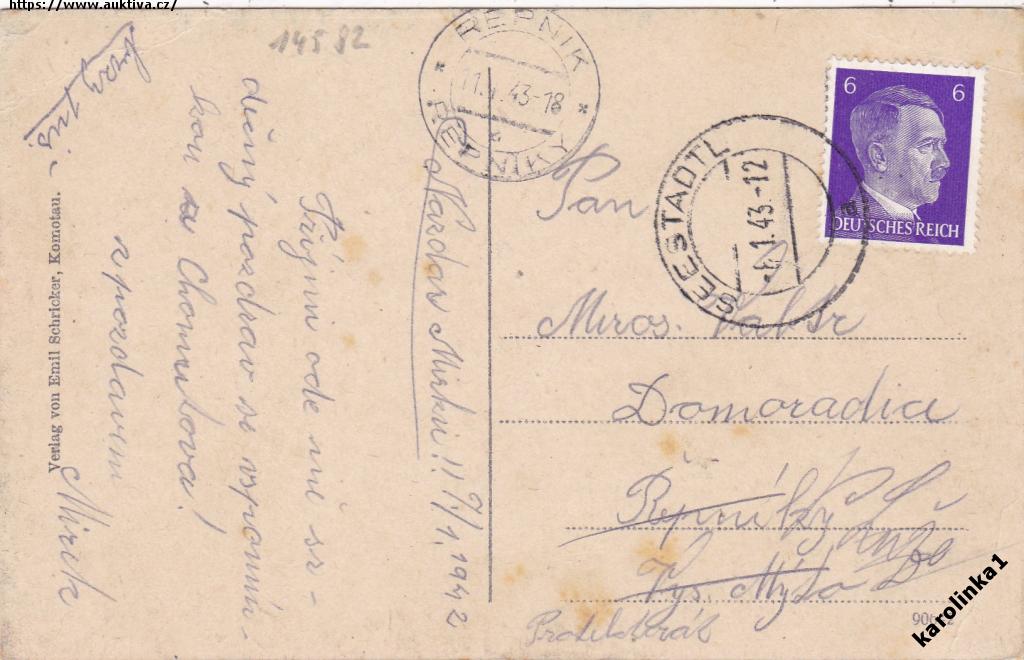 https://www.auktiva.cz/
14582
Nazdar Mirku!! 7/1, 1942
Přijmi ode mě sr-
dečný pozdrav se vzpomín-
kou z Chomutova!
s pozdravem
Mirek
Verlag von Emil Schricker, Komotau.
ŘEPNIK
11.1.43-18
ŘEPNIKY
SEESTADTL
.1.43-12
a
6 6
DEUTSCHES REICH
Pan
Miros.
Domoradice
Řepníky
Vys. Mýto
Protektorát
karolinka1